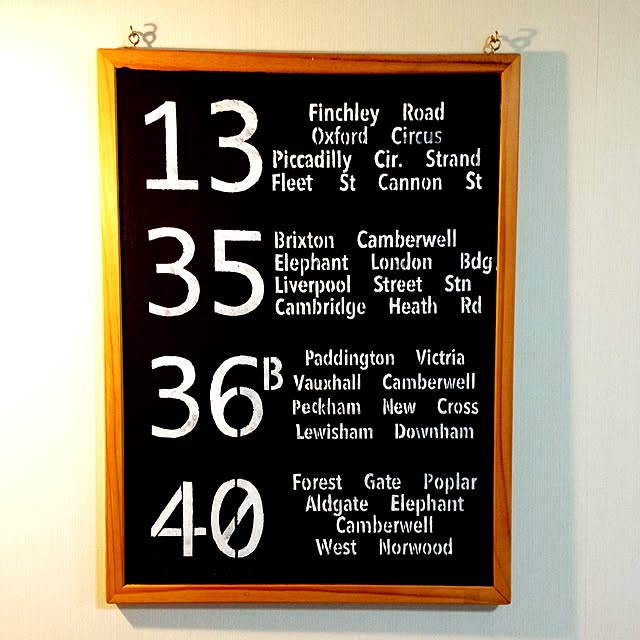 13
Finchley Road
Oxford Circus
Piccadilly Cir. Strand
Fleet St Cannon St
35
Brixton Camberwell
Elephant London Bdg.
Liverpool Street Stn
Cambridge Heath Rd
36B
Paddington Victria
Vauxhall Camberwell
Peckham New Cross
Lewisham Downham
40
Forest Gate Poplar
Aldgate Elephant
Camberwell
West Norwood